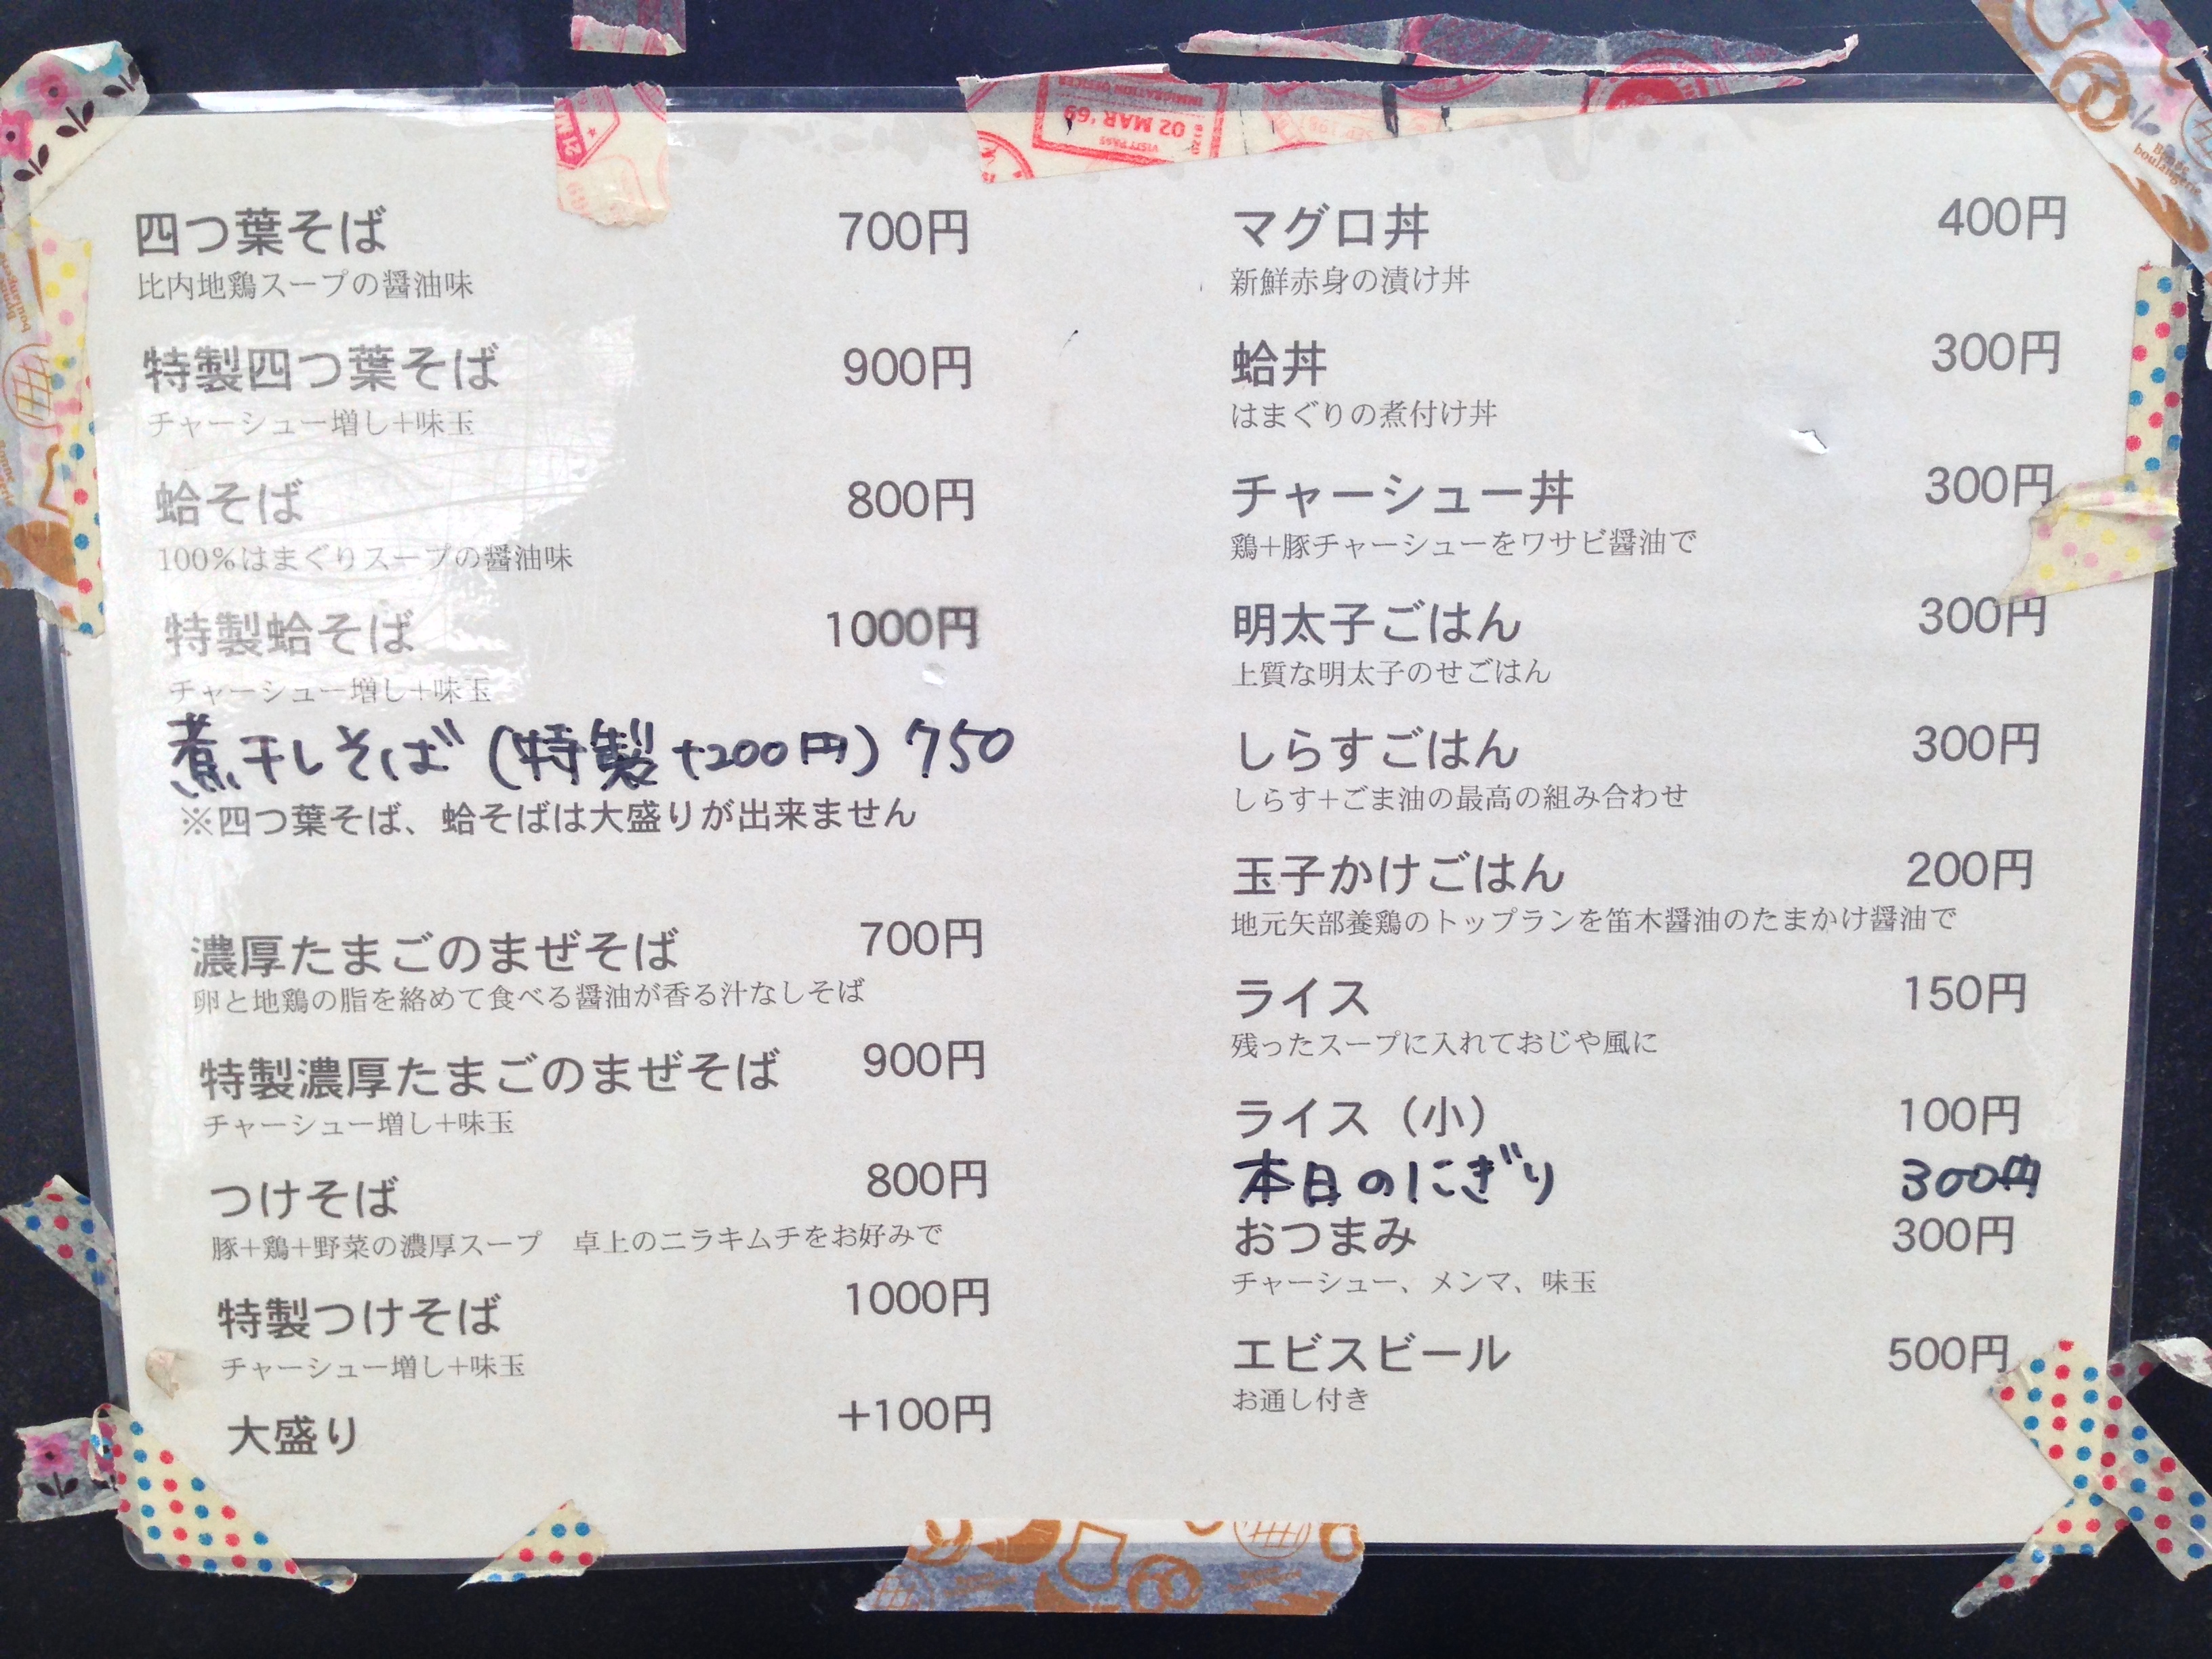 四つ葉そば 700円
比内地鶏スープの醤油味
特製四つ葉そば 900円
チャーシュー増し+味玉
蛤そば 800円
100%はまぐりスープの醤油味
特製蛤そば 1000円
チャーシュー増し+味玉
煮干しそば (特製+200円) 750
※四つ葉そば、蛤そばは大盛りが出来ません
濃厚たまごのまぜそば 700円
卵と地鶏の脂を絡めて食べる醤油が香る汁なしそば
特製濃厚たまごのまぜそば 900円
チャーシュー増し+味玉
つけそば 800円
豚+鶏+野菜の濃厚スープ　卓上のニラキムチをお好みで
特製つけそば 1000円
チャーシュー増し+味玉
大盛り +100円
マグロ丼 400円
新鮮赤身の漬け丼
蛤丼 300円
はまぐりの煮付け丼
チャーシュー丼 300円
鶏+豚チャーシューをワサビ醤油で
明太子ごはん 300円
上質な明太子のせごはん
しらすごはん 300円
しらす+ごま油の最高の組み合わせ
玉子かけごはん 200円
地元矢部養鶏のトップランを笛木醤油のたまかけ醤油で
ライス 150円
残ったスープに入れておじや風に
ライス（小） 100円
本日のにぎり 300円
おつまみ 300円
チャーシュー、メンマ、味玉
エビスビール 500円
お通し付き
IMMIGRATION OFFICER
02 MAR '69
VISIT PASS
boulangerie